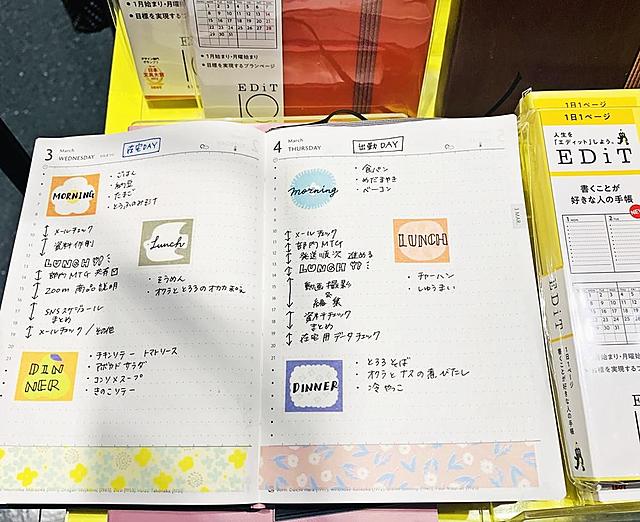 ・1月始まり・月曜始まり
・目標を実現するプランページ
日本
文具大賞
EDiT
・1月始まり・月曜始まり
・目標を実現するプランページ
EDiT
3 March
WEDNESDAY
在宅DAY
MORNING
・ごはん
・納豆
・たまご
・とうふのみそ汁
メールチェック
資料作成
LUNCH
部内MTG 共有日
ZOOM 商品説明
SNSスケジュール
まとめ
メールチェック/その他
Lunch
・そうめん
・オクラととろろのオカカあえ
DINNER
・チキンソテー トマトソース
・アボカド サラダ
・コンソメスープ
・きのこソテー
4 March
THURSDAY
出勤DAY
morning
・食パン
・めだまやき
・ベーコン
メールチェック
部内MTG
発送順次 進める
LUNCH
動画撮影
&
編集
資料チェック
まとめ
在宅用データチェック
LUNCH
・チャーハン
・しゅうまい
DINNER
・とろろそば
・オクラとナスの煮びたし
・冷やっこ
3 MAR
1日1ページ
1日1ページ
人生を
「エディット」しよう。
EDiT
書くことが
好きな人の手帳
NEW
EDiT
1日1ページ
書くことが好きな人の手帳